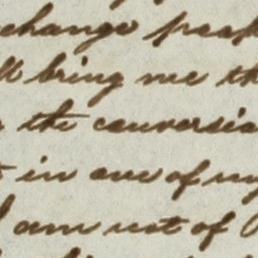 change peop
ll bring me th
the conversio
in one of my
I am not of